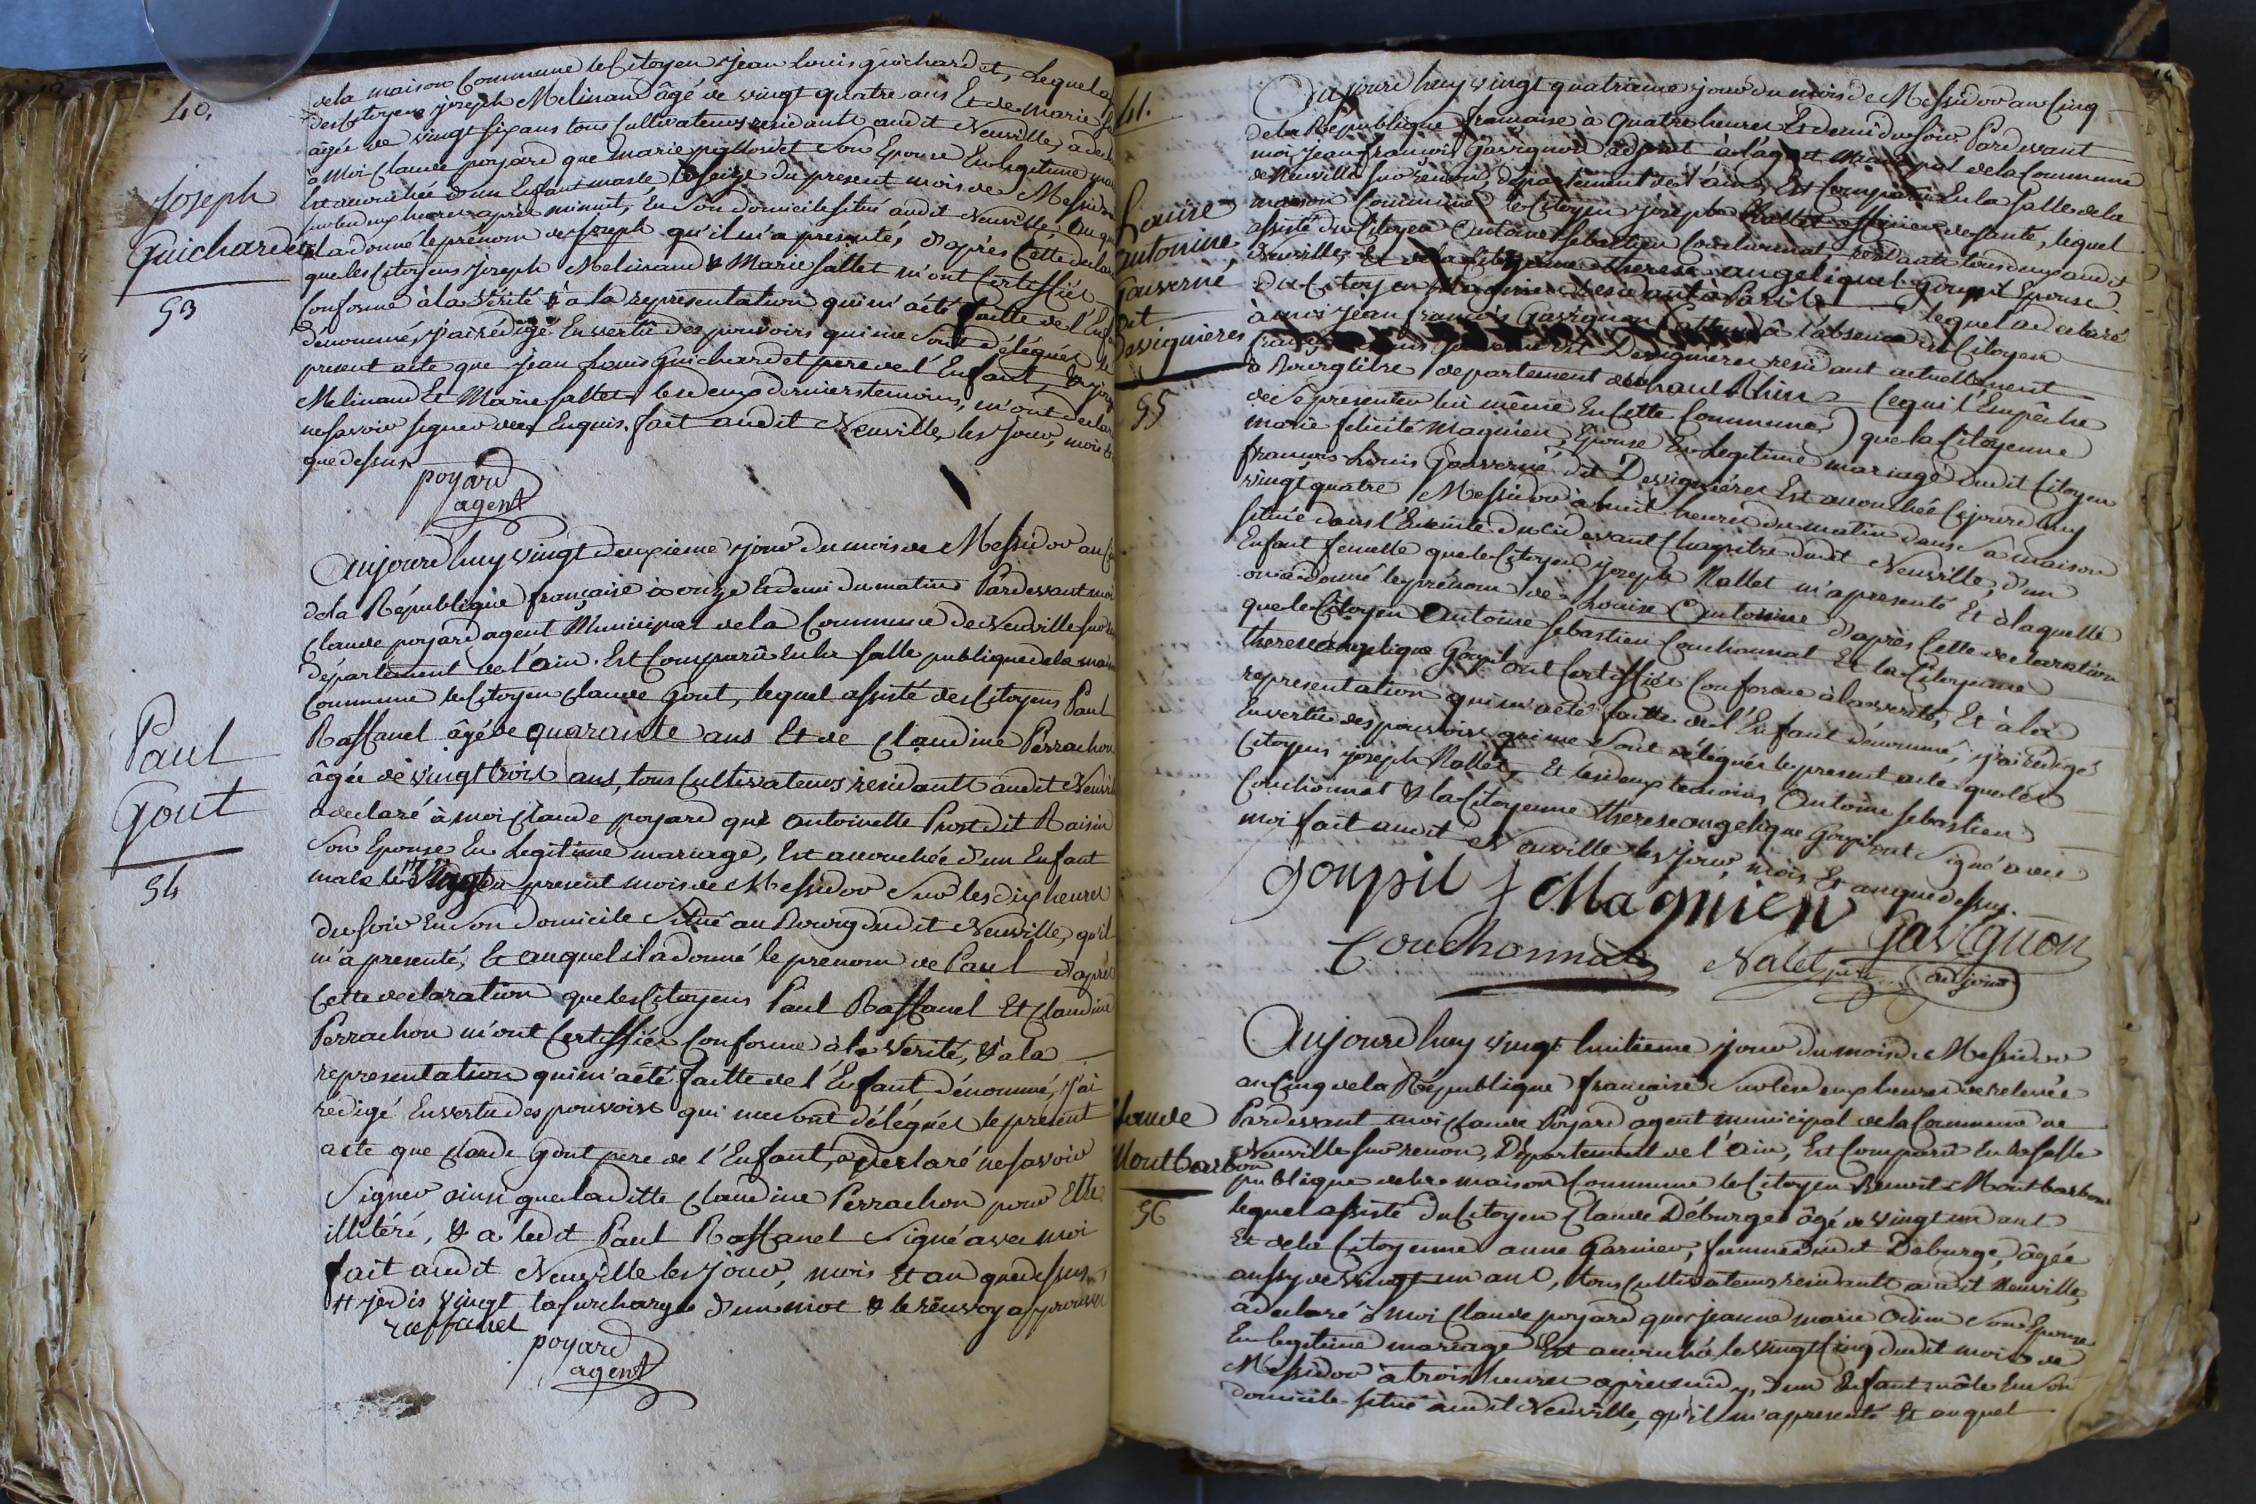 40.
de la maison Commune le Citoyen Jean Louis guichardet, Lequel a
des Citoyens joseph Melinand âgé de vingt quatre ans Et de Marie
âgée de vingt six ans tous Cultivateurs residants audit Neuville, a
à Moi Claude poyard que Marie son Epouse En legitime
Est accouchée d'un Enfant masle le seize du present mois de Messidor
sur les deux heures après minuit, En son domicile situé audit Neuville,
il a donné le prénom de Joseph qu'il m'a presenté, d'après Cette
que les Citoyens Joseph Melinand & Marie fallet m'ont Certiffiés
Conforme à la Vérité & à la représentation qui m'a été faitte de l'
denommé, j'ai rédigé En vertû des pouvoirs qui me sont délégués le
present acte que Jean Louis Guichardet pere de l'Enfant, &
Melinand Et Marie fallet les deux derniers temoins, m'ont
ne savoir signer de ce Enquis. fait audit Neuville les Jour, mois
que dessus
poyard
agent
Joseph
Guichardet
53
Aujourd'huy vingt deuxieme jour du mois de Messidor an
de la République française à onze Et demi du matin Pardevant moi
Claude poyard agent Municipal de la Commune de Neuville sur
département de l'ain. Est Comparû En la salle publique de la
Commune le Citoyen Claude Gout, lequel assisté des Citoyens Paul
Raffanel âgé de quarante ans Et de Claudine Perrachon
âgée de vingt trois ans, tous Cultivateurs residants audit
a declaré à moi Claude poyard que antoinette Prost dit Raisin
son Epouse En Legitime mariage, Est accouchée d'un Enfant
male le # vingt du present mois de Messidor sur les dix heures
du soir En son domicile situé au Bourg dudit Neuville, qu'il
m'a presenté, Et auquel il a donné le prenom de Paul d'après
Cette declaration que les Citoyens Paul Raffanel Et Claudine
Perrachon m'ont Certiffiés Conforme à la Verité, & à la
représentation qui m'a été faitte de l'Enfant dénommé, j'ai
rédigé En vertu des pouvoirs qui me sont délégués le présent
acte que Claude Gout pere de l'Enfant, a declaré ne savoir
Signer ainsi que laditte Claudine Perrachon pour Etre
illitéré, & a ledit Paul Raffanel Signé avec moi
fait audit Neuville les jour, mois Et an que dessus
# je dis vingt la surcharge d'un mot & le renvoy approuvés
raffanel
poyard
agent
Paul
Gout
54
41.
Aujourd'huy vingt quatrieme jour du mois de Messidor an Cinq
de la République française à quatre heures Et demi du soir. Pardevant
moi jean françois Gavignon adjoint à l'agent municipal de la Commune
de Neuville sur renon, département de l'ain, Est Comparû En la salle de la
maison Commune le Citoyen Joseph Nallet officier de santé, lequel
assisté du Citoyen Antoine Sebastien Couchonnat residants tous deux audit
Neuville, Et de la Citoyenne therese angelique Goupil Epouse
du Citoyen Magnien residant à Paris lequel a declaré
à moi jean françois Gavignon attendû l'absence du Citoyen
Gouverné dit Desvignieres residant actuellement
à Bourglibre departement du haut Rhin Ce qui l'Empêche
de se presenter lui même En Cette Commune) que la Citoyenne
Marie felicité Magnien, Epouse En Legitime mariage dudit Citoyen
françois Louis Gouverné dit Desvignieres Est accouchée Cejourd'huy
vingt quatre Messidor à huit heures du matin dans sa maison
située dans l'Enceinte du Cidevant Chapitre dudit Neuville, d'un
Enfant femelle que le Citoyen joseph Nallet m'a presenté Et à laquelle
on a donné le prénom de Louise Antonine d'après Cette declaration
que le Citoyen Antoine Sebastien Couchonnat Et la Citoyenne
therese angelique Goupil ont Certiffiés Conforme à la verité, Et à la
représentation qui m'a été faitte de l'Enfant dénommé, j'ai Rédigé
En vertû des pouvoirs qui me sont délégués le present acte que les
Citoyens joseph Nallet, Et les deux temoins Antoine Sebastien
Couchonnat & la Citoyenne therese angelique Goupil ont Signé avec
moi fait audit Neuville les jour, mois Et an que dessus.
Goupil f Magnien
Couchonnat Nalet Gavignon
adjoint
Louise
antonine
Gouverné
dit
Desvignieres
55
Aujourd'huy vingt huitieme jour du mois de Messidor
an Cinq de la République française sur les deux heures de relevée
Pardevant moi Claude Poyard agent municipal de la Commune de
Neuville sur renon, Département de l'Ain, Est Comparû En la salle
publique de la maison Commune le Citoyen Benoit Montbarbon
lequel assisté du Citoyen Claude Déburge âgé de vingt un ans
Et de la Citoyenne anne Garnier, femme dudit Déburge, âgée
aussy de vingt un ans, tous Cultivateurs residants audit Neuville,
a declaré à moi Claude poyard que jeanne marie Odin son Epouse
En legitime mariage Est accouchée le vingt Cinq dudit mois de
Messidor à trois heures après midy, d'un Enfant mâle En son
domicile situé audit Neuville, qu'il m'a presenté Et auquel
Claude
Montbarbon
56